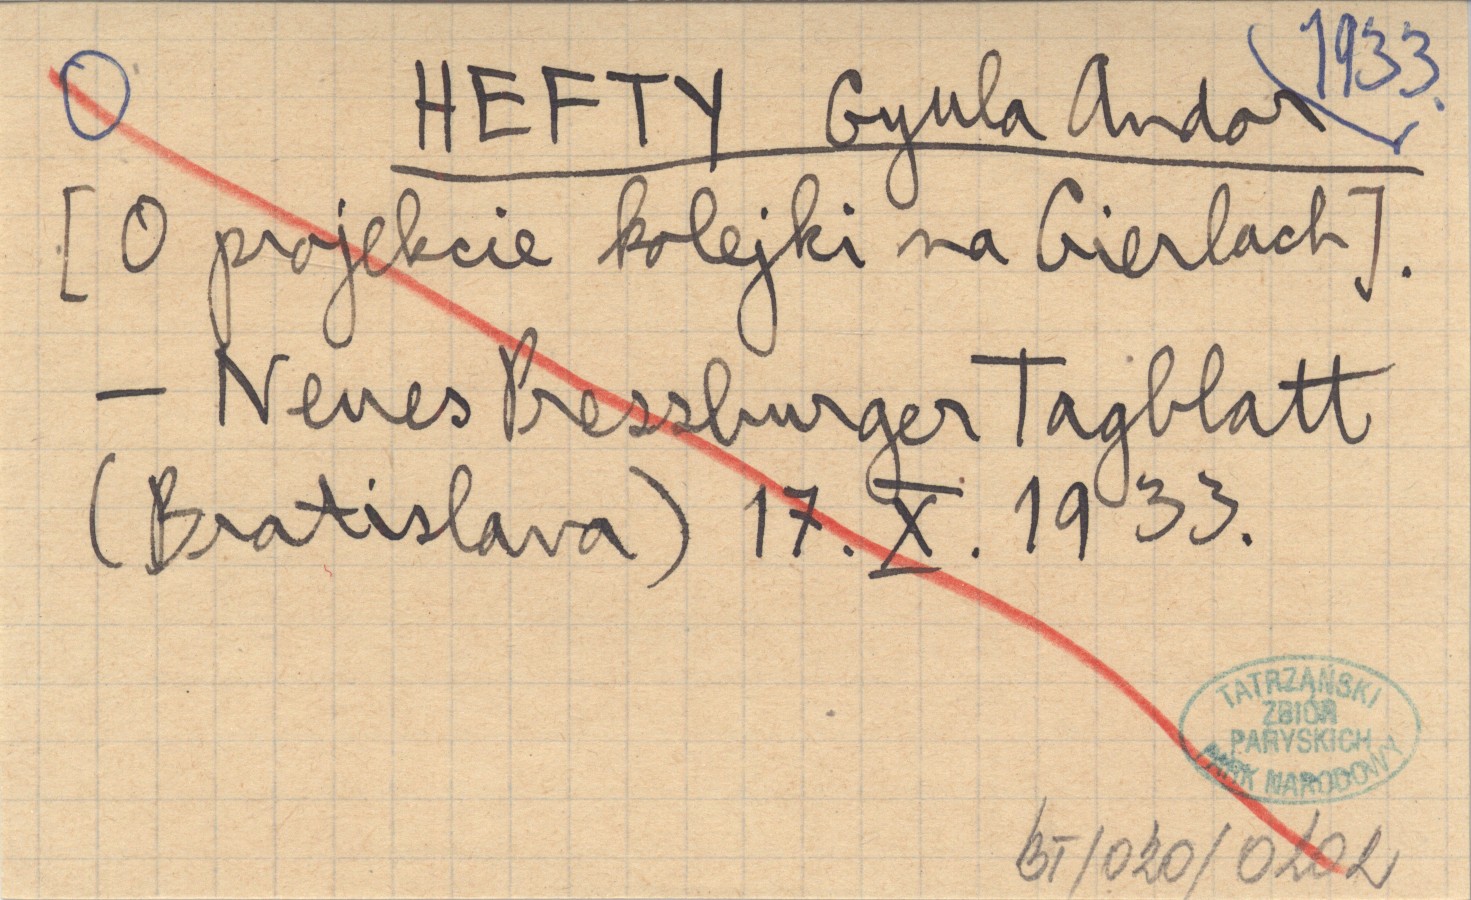 O
1933.
HEFTY Gyula Andor
[O projekcie kolejki na Gierlach].
— Neues Pressburger Tagblatt
(Bratislava) 17. X. 1933.
TATRZAŃSKI
ZBIÓR
PARYSKICH
PARK NARODOWY
BT/020/0202